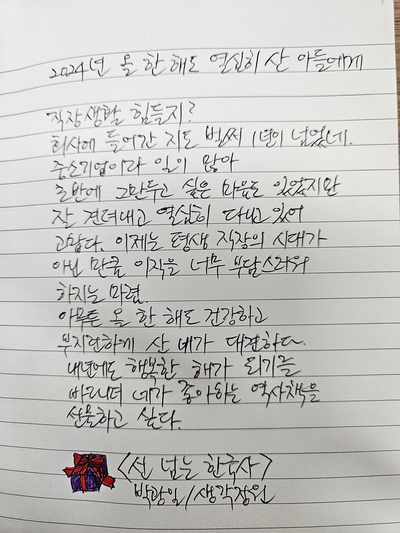 2024년 올 한 해도 열심히 산 아들에게
직장생활 힘들지?
회사에 들어간 지도 벌써 1년이 넘었네.
중소기업이라 일이 많아
초반에 그만두고 싶은 마음도 있었지만
잘 견뎌내고 열심히 다니고 있어
고맙다. 이제는 평생 직장의 시대가
아닌 만큼 이직을 너무 부담스러워
하지는 마렴.
아무튼 올 한 해도 건강하고
부지런하게 산 네가 대견하다.
내년에도 행복한 해가 되기를
바라며 네가 좋아하는 역사책을
선물하고 싶다.
<선 넘는 한국사>
박광일/생각정원